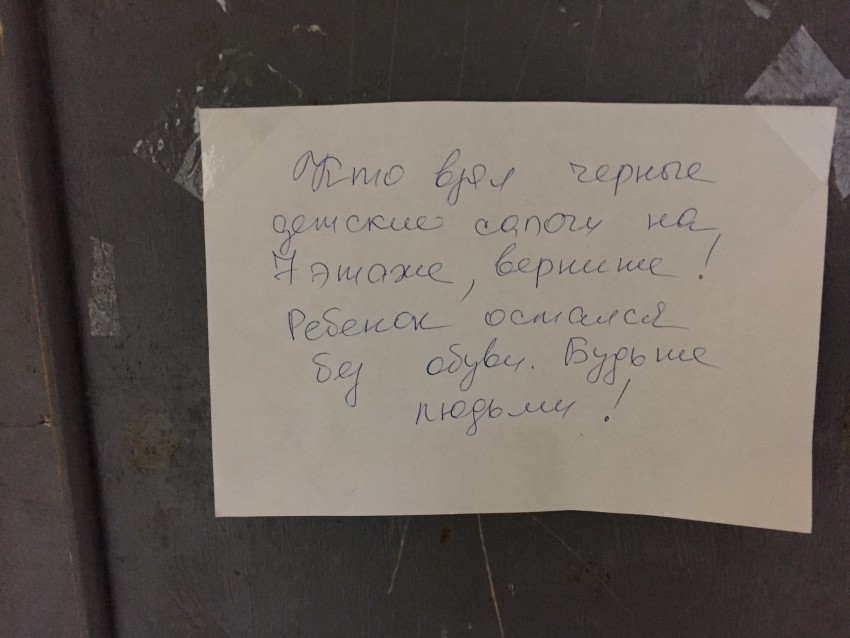 Кто взял черные
детские сапоги на
7 этаже, верните!
Ребенок остался
без обуви. Будьте
людьми!